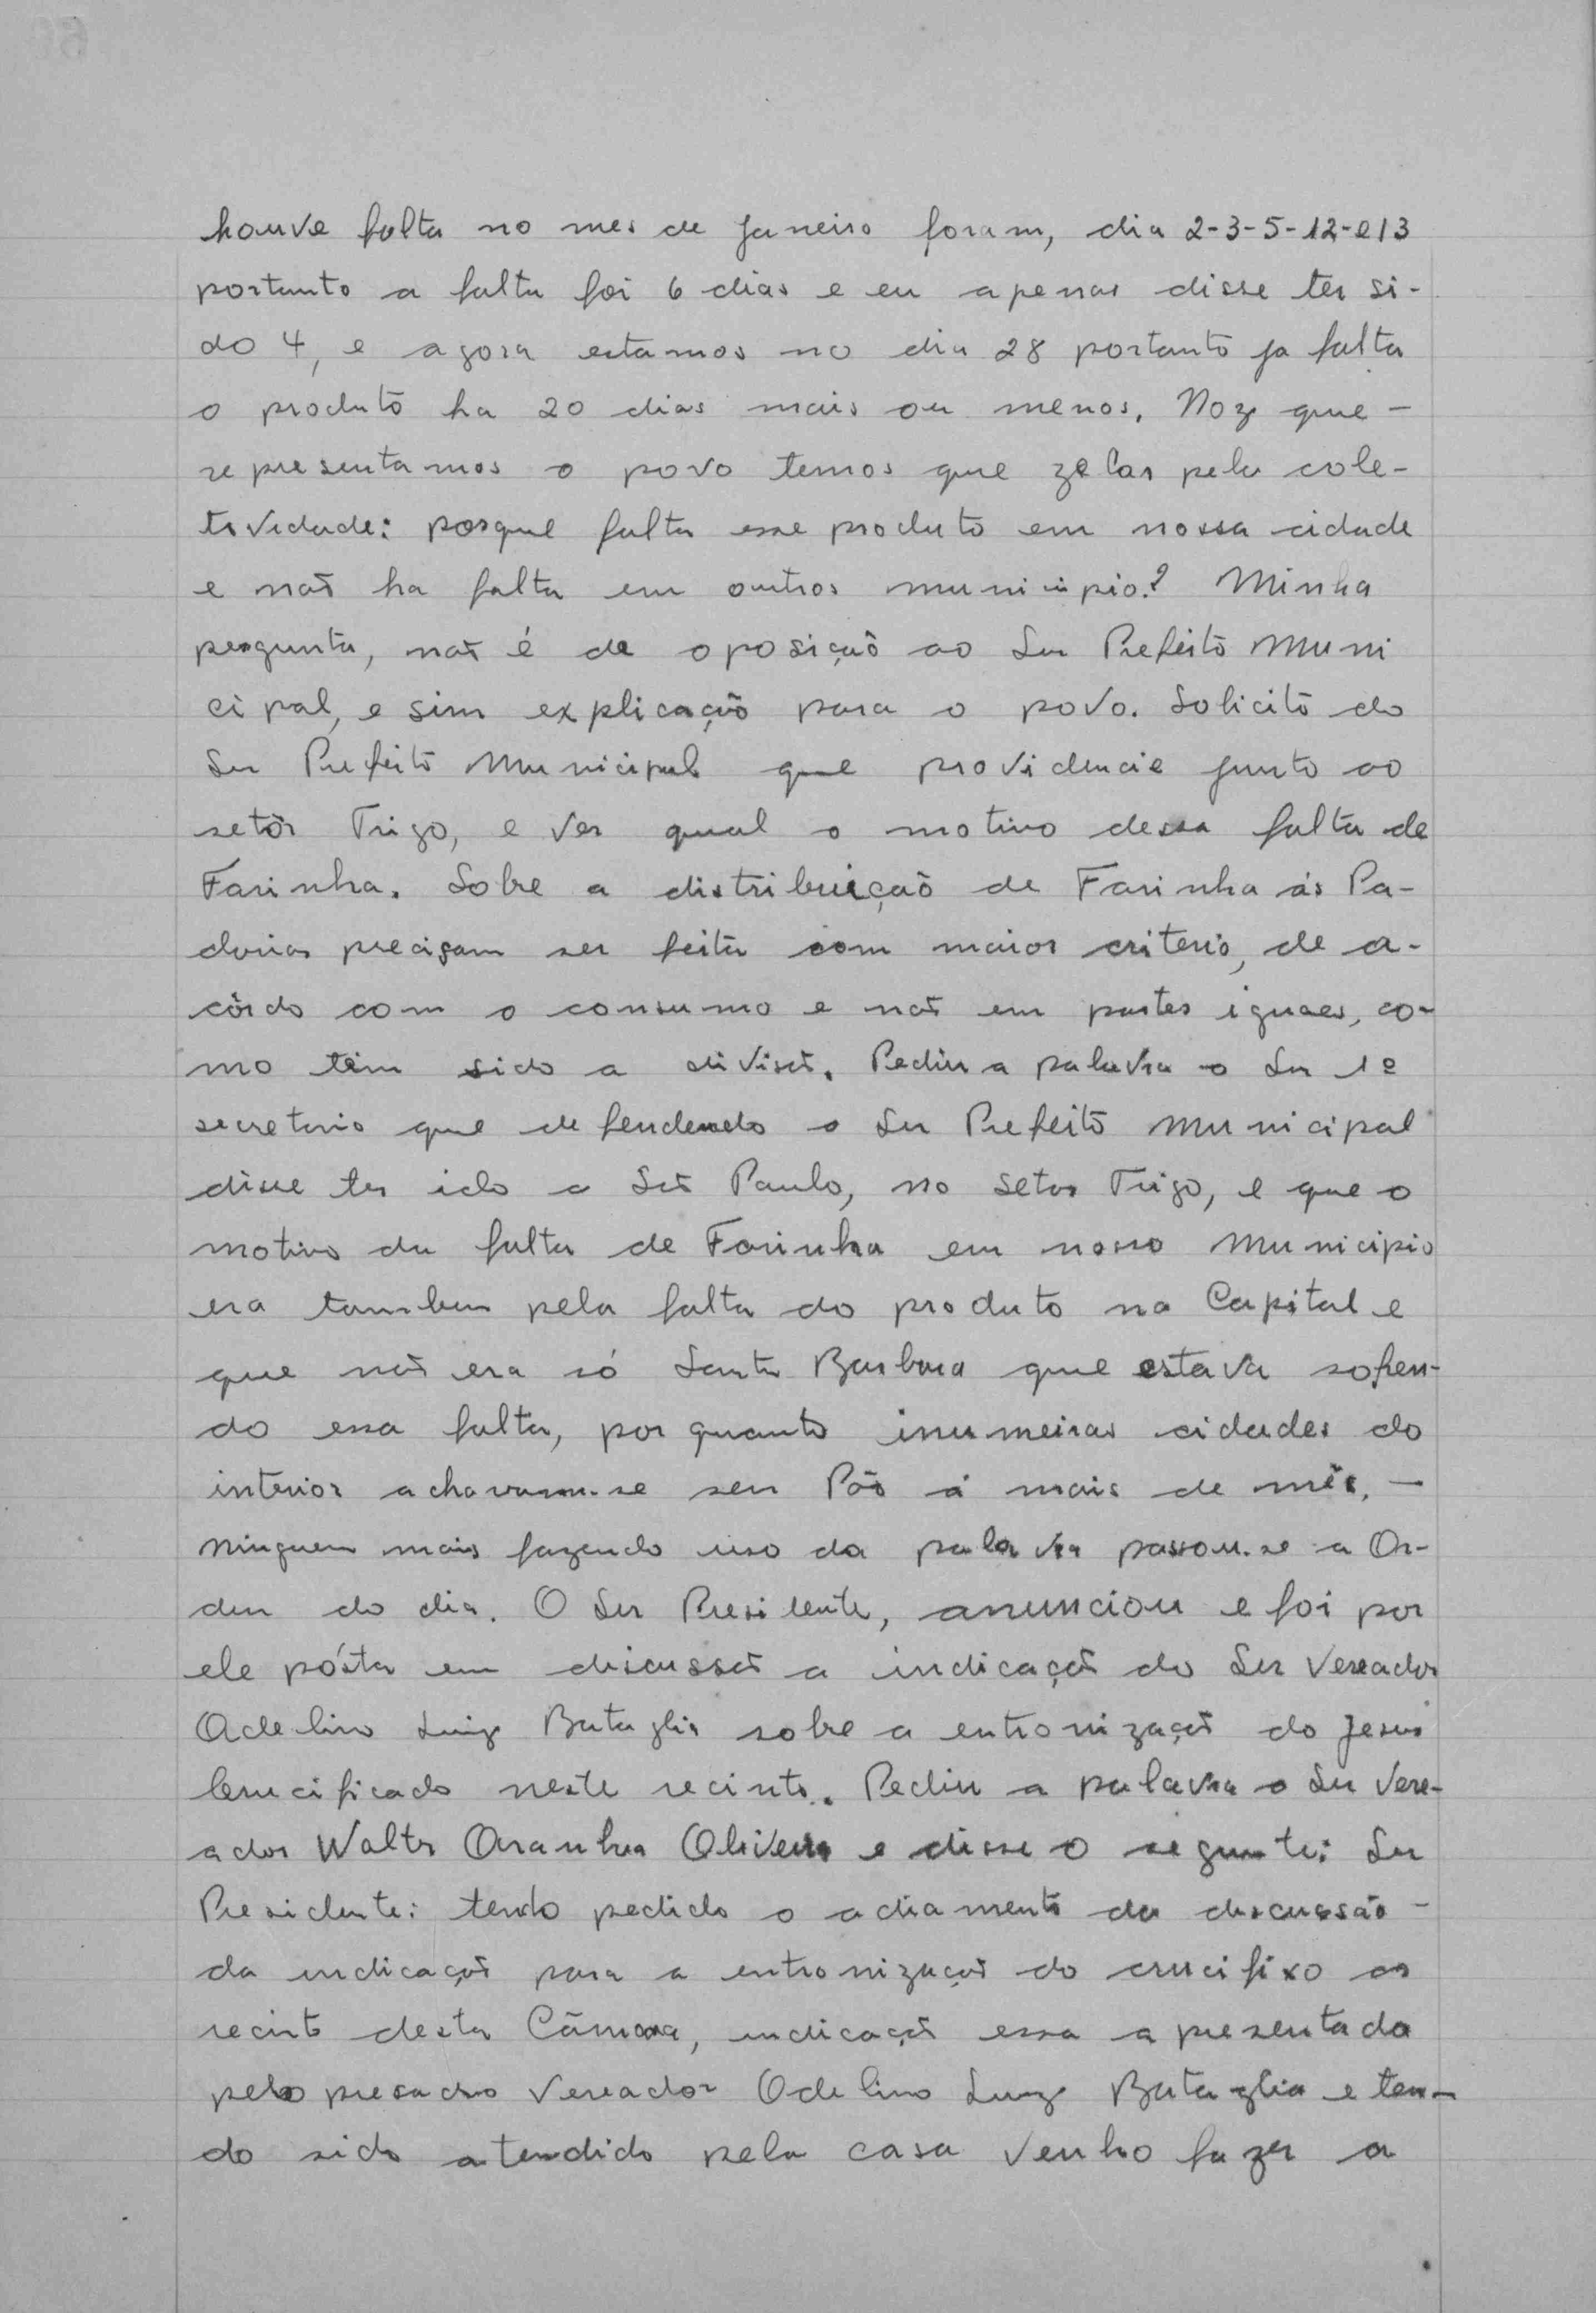 houve falta no mes de Janeiro foram, dia 2-3-5-12-e13
portanto a falta foi 6 dias e eu apenas disse ter si-
do 4, e agora estamos no dia 28 portanto ja falta
o produto ha 20 dias mais ou menos. Noz que -
representamos o povo temos que zelar pela cole-
tividade: porque falta esse produto em nossa cidade
e não ha falta em outros municipio? Minha
pergunta, não é de oposição ao Snr Prefeito Muni
cipal, e sim explicação para o povo. Solicito do
Snr Prefeito Municipal que providencie junto ao
setôr Trigo, e ver qual o motivo dessa falta de
Farinha. Sobre a distribuição de Farinha ás Pa-
darias precisam ser feita com maior criterio, de a-
côrdo com o consumo e não em partes iguaes, co-
mo têm sido a divisão. Pediu a palavra o Snr 1º
secretario que defendendo o Snr Prefeito Municipal
disse ter ido a São Paulo, no Setor Trigo, e que o
motivo da falta de Farinha em nosso Municipio
era tambem pela falta do produto na Capital e
que não era só Santa Barbara que estava sofren-
do essa falta, por quanto inumeiras cidades do
interior achavam-se sem Pão á mais de mês. -
Ninguem mais fazendo uso da palavra passou-se a Or-
dem do dia. O Snr Presidente, anunciou e foi por
ele pósta em discussão a indicação do Snr Vereador
Odelino Luiz Bataglia sobre a entronização do Jesus
Crucificado neste recinto. Pediu a palavra o Snr Vere-
ador Walter Aranha Oliveira e disse o seguinte: Snr
Presidente: tendo pedido o adiamento da discussão -
da indicação para a entronização do crucifixo no
recinto desta Câmara, indicação essa apresentada
pelo presado Vereador Odelino Luiz Bataglia e ten-
do sido atendido pela casa venho fazer a